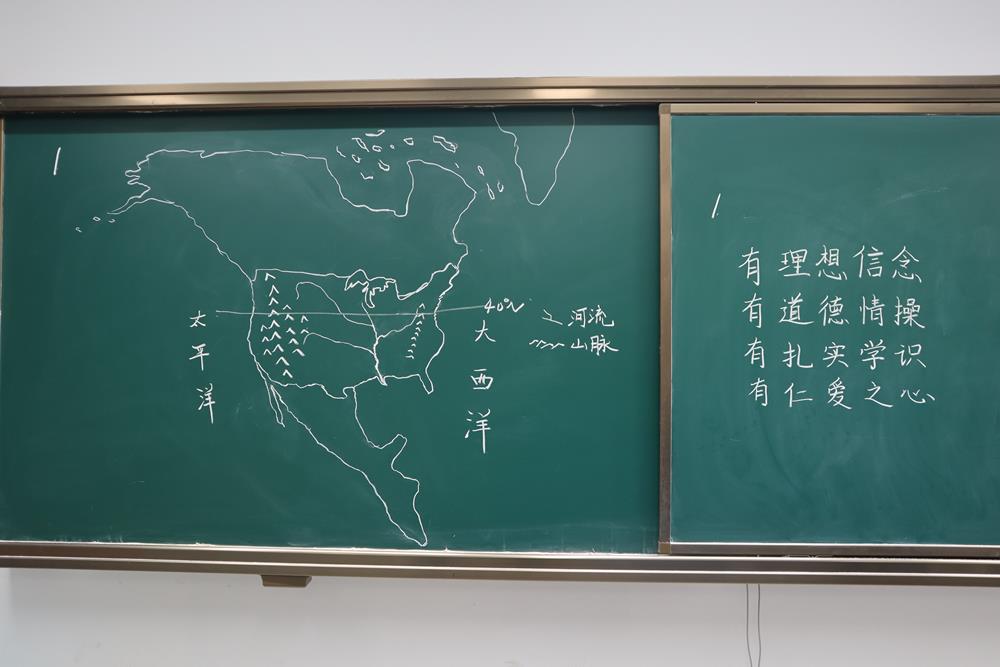 太平洋
40°N
大西洋
河流
山脉
有理想信念
有道德情操
有扎实学识
有仁爱之心